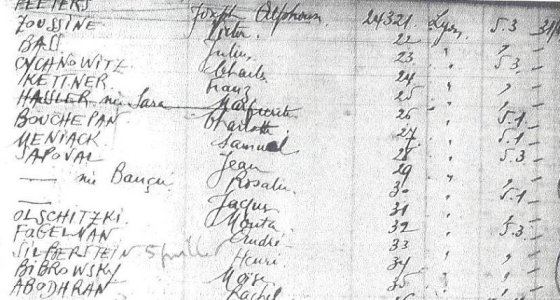 PEETERS Joseph Alphonse 24321 Lyon 5.3
ZOUSSINE Victor. 22 " "
BASS Jules 23 " 5.3
CYCHNOWITZ Charles 24 " "
KETTNER Franz 25 " "
HASSLER née Sara Marguerite 26 " 5.1
BOUCHEPAN Charlotte 27 " 5.1
MENIACK Samuel 28 " 5.3
SAPOVAL Jean 29 " "
— née Rosalie 30 " 5.1
— Jaques 31 "
OLSCHITZKI. 32 " 5.3
FOGELMAN André 33 " "
SILBERSTEIN 5 juillet Henri 34 " "
BIBROWSKY Moïse 35 " "
ABODHRAN Rachel